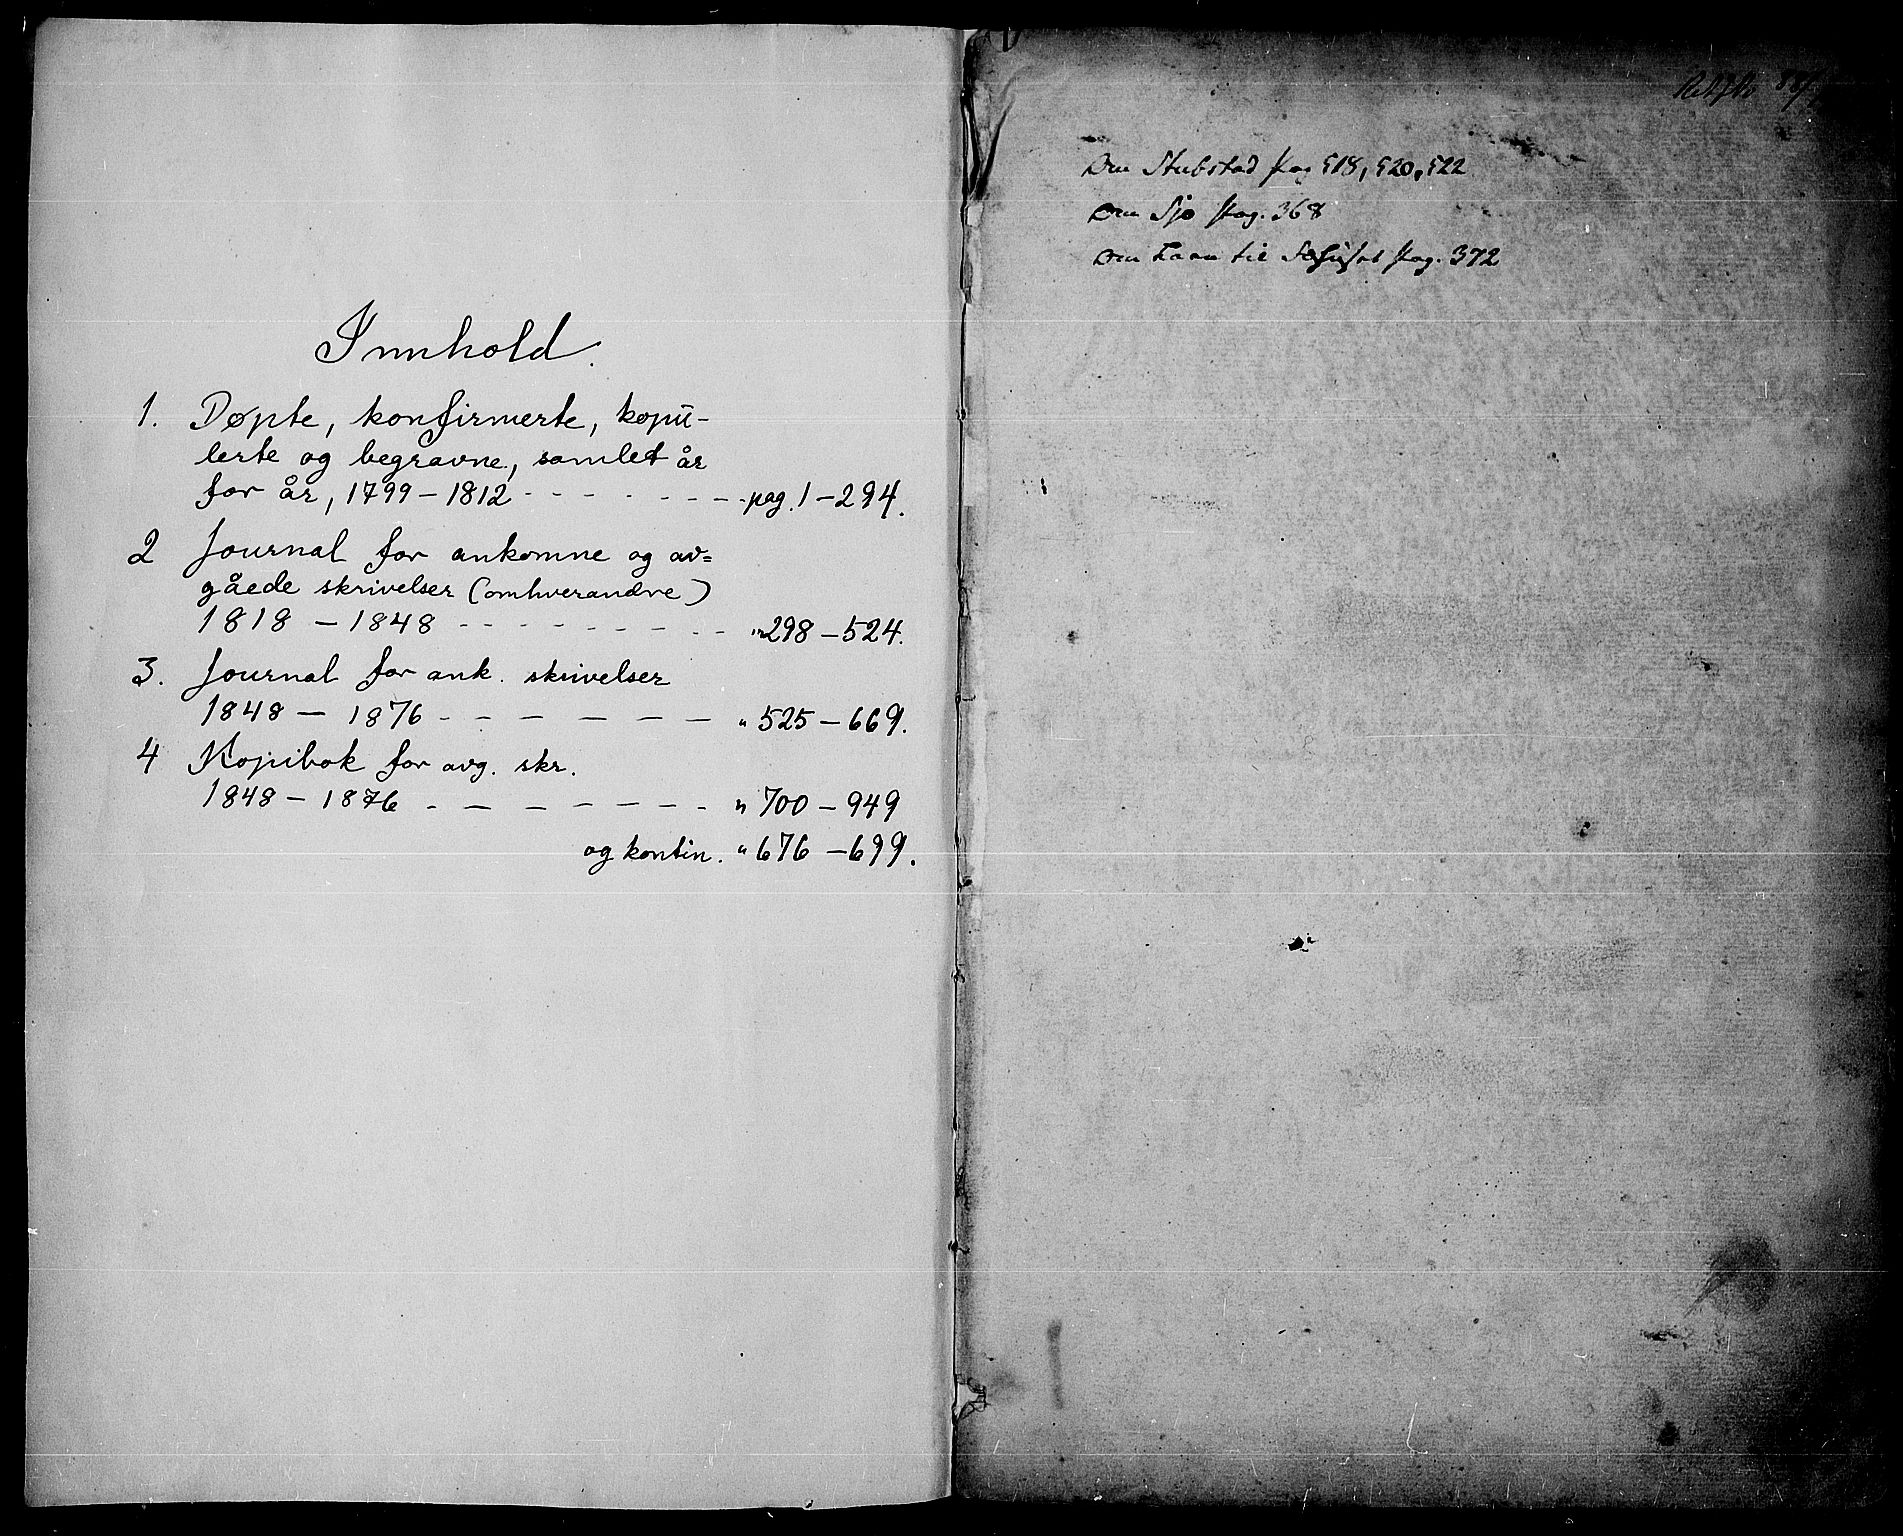 Innhold.
1. Døpte, konfirmerte, kopu-
lerte og begravne, samlet år
for år, 1799 – 1812 - - - - - - - - pag. 1 – 294.
2 Journal for ankomne og av=
gåede skrivelser (omhverandre)
1818 – 1848 - - - - - - - - - " 298 – 524.
3. Journal for ank. skrivelser
1848 – 1876 - - - - - - - " 525 – 669.
4 Kopibok for avg. skr.
1848 – 1876 - - - - - - - " 700 – 949
og kontin. " 676 – 699.
Om Stubstad pag 518, 520, 522
Om Sjo pag. 368
Om Laan til pag. 372